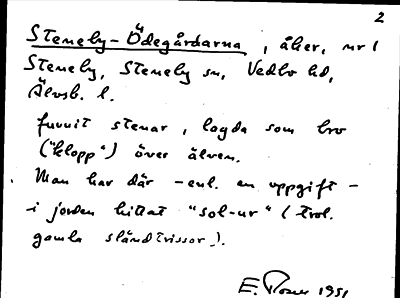 2
Steneby-Ödegårdarna, åker, nr 1
Steneby, Steneby sn, Vedbo hd,
Älvsb. l.
funnit stenar, lagda som bro
("klopp") över älven.
Man har där - enl. en uppgift -
i jorden hittat "sol-ur" (trol.
gamla sländtrissor).
E. 1951